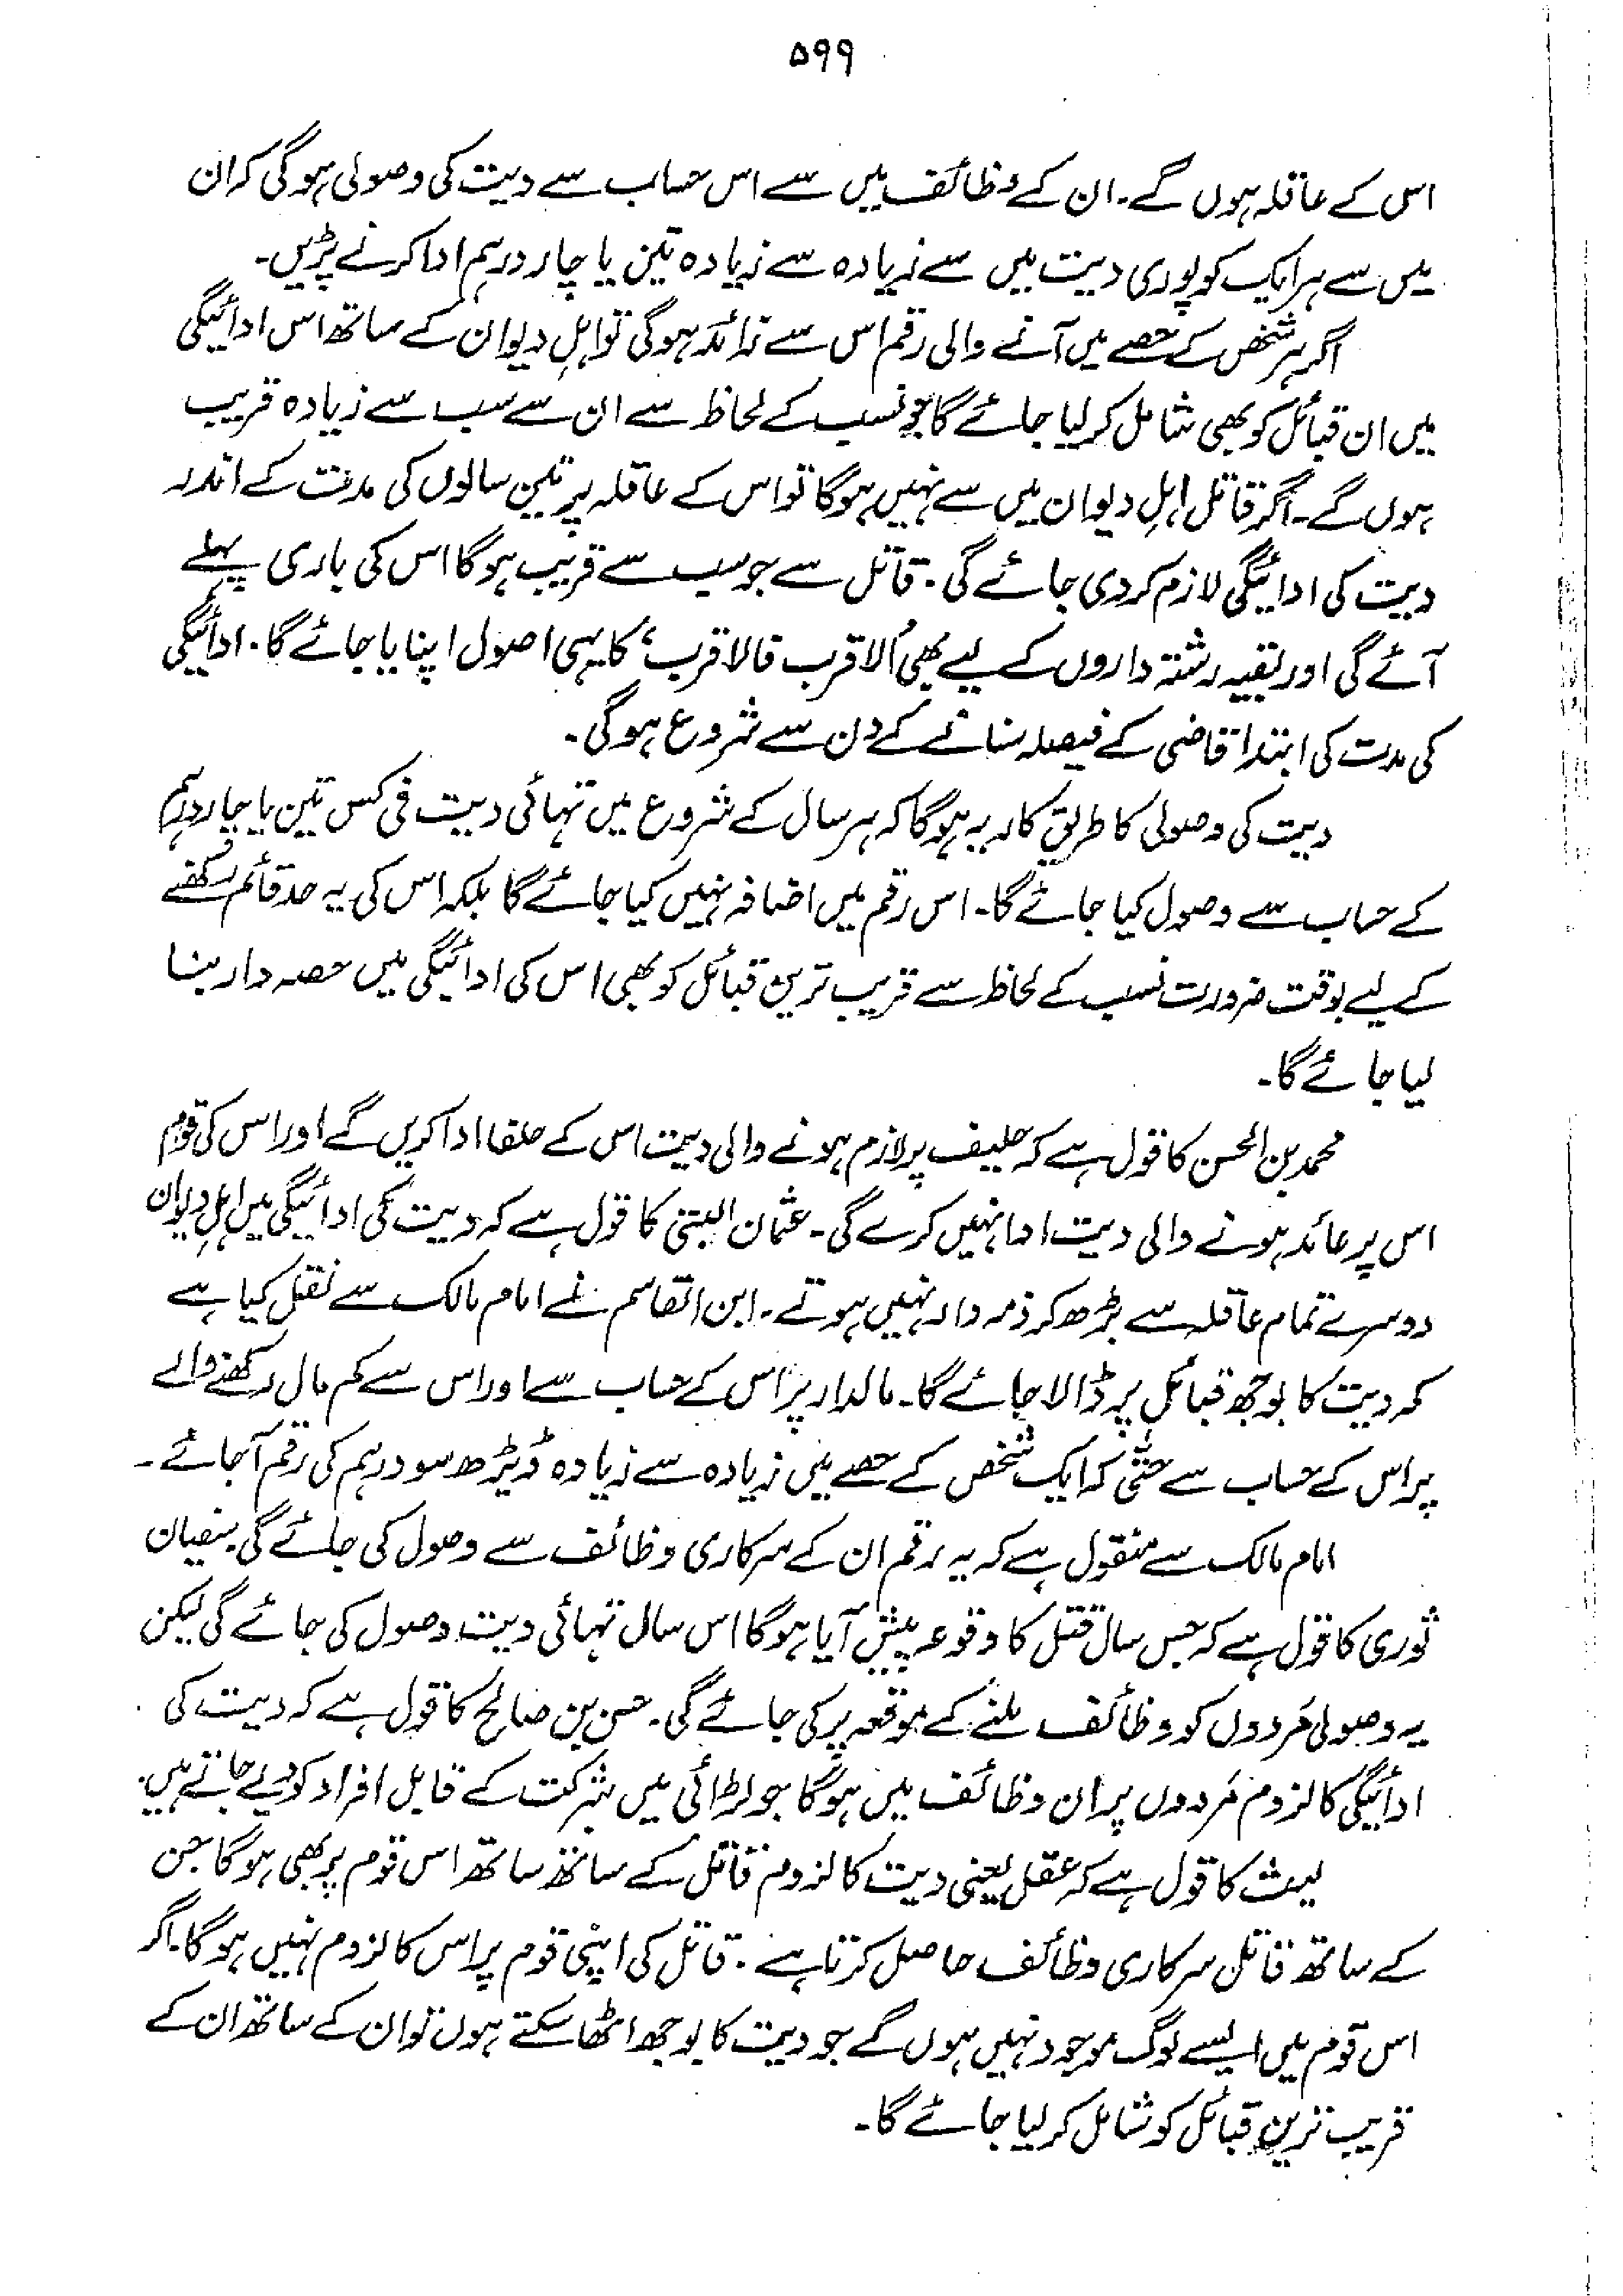 ۵۹۹
اس کے عاقلہ ہوں گے۔ ان کے وظائف میں سے اس حساب سے دیت کی وصولی ہوگی کہ ان
میں سے ہر ایک کو پوری دیت میں سے زیادہ سے زیادہ تین یا چار درہم ادا کرنے پڑیں۔
اگر ہر شخص کے حصے میں آنے والی رقم اس سے زائد ہوگی تو اہلِ دیوان کے ساتھ اس ادائیگی
میں ان قبائل کو بھی شامل کر لیا جائے گا جو نسب کے لحاظ سے ان سے سب سے زیادہ قریب
ہوں گے۔ اگر قاتل اہلِ دیوان میں سے نہیں ہوگا تو اس کے عاقلہ پر تین سالوں کی مدت کے اندر
دیت کی ادائیگی لازم کر دی جائے گی۔ قاتل سے جو سب سے قریب ہوگا اس کی باری پہلے
آئے گی اور بقیہ رشتہ داروں کے لیے بھی 'الاقرب فالاقرب' کا یہی اصول اپنایا جائے گا۔ ادائیگی
کی مدت کی ابتدا قاضی کے فیصلہ سنانے کے دن سے شروع ہوگی۔
دیت کی وصولی کا طریق کار یہ ہوگا کہ ہر سال کے شروع میں تہائی دیت فی کس تین یا چار درہم
کے حساب سے وصول کیا جائے گا۔ اس رقم میں اضافہ نہیں کیا جائے گا بلکہ اس کی یہ حد قائم رکھنے
کے لیے بوقت ضرورت نسب کے لحاظ سے قریب ترین قبائل کو بھی اس کی ادائیگی میں حصہ دار بنا
لیا جائے گا۔
محمد بن الحسن کا قول ہے کہ حلیف پر لازم ہونے والی دیت اس کے حلفا ادا کریں گے اور اس کی قوم
اس پر عائد ہونے والی دیت ادا نہیں کرے گی۔ عثمان البتی کا قول ہے کہ دیت کی ادائیگی میں اہلِ دیوان
دوسرے تمام عاقلہ سے بڑھ کر ذمہ دار نہیں ہوتے۔ ابن القاسم نے امام مالک سے نقل کیا ہے
کہ دیت کا بوجھ قبائل پر ڈالا جائے گا۔ مالدار پر اس کے حساب سے اور اس سے کم مال رکھنے والے
پر اس کے حساب سے حتّٰی کہ ایک شخص کے حصے میں زیادہ سے زیادہ ڈیڑھ سو درہم کی رقم آ جائے۔
امام مالک سے منقول ہے کہ یہ رقم ان کے سرکاری وظائف سے وصول کی جائے گی۔ سفیان
ثوری کا قول ہے کہ جس سال قتل کا وقوعہ پیش آیا ہوگا اس سال تہائی دیت وصول کی جائے گی لیکن
یہ وصولی مَردوں کو وظائف ملنے کے موقعہ پر کی جائے گی۔ حسن بن صالح کا قول ہے کہ دیت کی
ادائیگی کا لزوم مَردوں پر ان وظائف میں ہوگا جو لڑائی میں شرکت کے قابل افراد کو دیے جاتے ہیں۔
لیث کا قول ہے کہ عقل یعنی دیت کا لزوم قاتل کے ساتھ ساتھ اس قوم پر بھی ہوگا جن
کے ساتھ قاتل سرکاری وظائف حاصل کرتا ہے۔ قاتل کی اپنی قوم پر اس کا لزوم نہیں ہوگا۔ اگر
اس قوم میں ایسے لوگ موجود نہیں ہوں گے جو دیت کا بوجھ اٹھا سکتے ہوں تو ان کے ساتھ ان کے
قریب ترین قبائل کو شامل کر لیا جائے گا۔